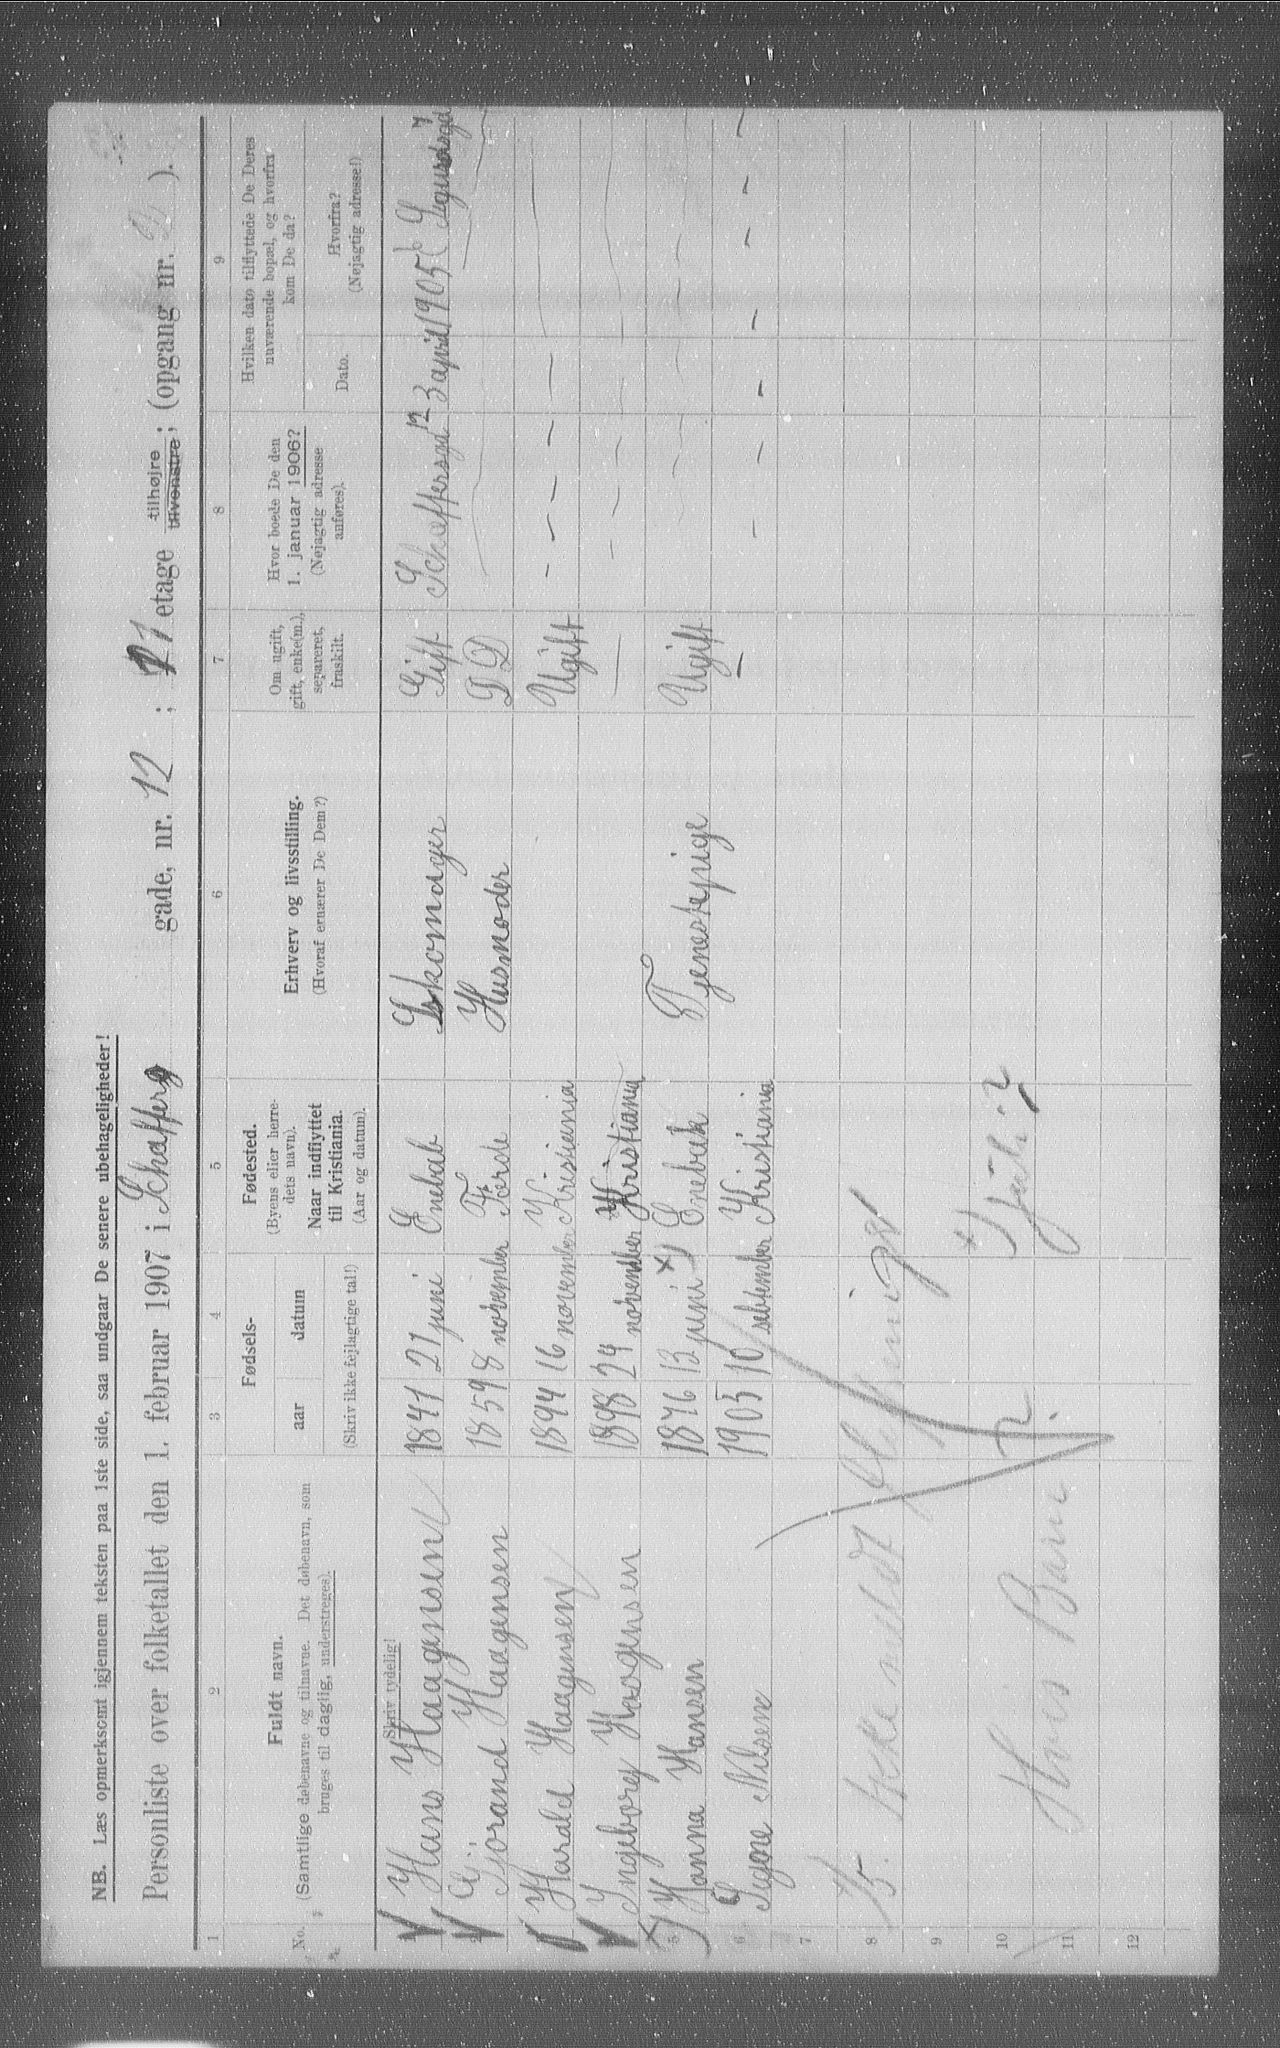 NB. Læs opmerksomt igjennem teksten paa 1ste side, saa undgaar De senere ubehageligheder!
Personliste over folketallet den 1. februar 1907 i Schafferg gade, nr. 12 ; 1 etage tilhøjre tilvenstre; (opgang nr. ).
1 2 3 4 5 6 7 8 9
No. Fuldt navn. (Samtlige døbenavne og tilnavne. Det døbenavn, som bruges til daglig, understreges).
Fødsels- aar datum (Skriv ikke fejlagtige tal!)
Fødested. (Byens eller herredets navn). Naar indflyttet til Kristiania. (Aar og datum).
Erhverv og livsstilling. (Hvoraf ernærer De Dem?)
Om ugift, gift, enke(m.), separeret, fraskilt.
Hvor boede De den 1. januar 1906? (Nøjagtig adresse anføres).
Hvilken dato tilflyttede De Deres nuværende bopæl, og hvorfra kom De da?
Dato. Hvorfra? (Nøjagtig adresse!)
Skriv tydelig!
Hans Haagensen 1847 21 juni Enebak Skomager Gift Schaffersgd 12 3 april 1905 Sigurdsgd 7
2 Gjorand Haagensen 1859 8 november Førde Husmoder D D
Harald Haagensen 1894 16 november Kristiania Ugift — — — —
Ingeborg Haagensen 1898 24 november Kristiania —
5 Hanna Hansen 1876 13 juni x) Enebak Tjenestepige Ugift
6 Signe Nilsen 1905 10 september Kristiania — — — — — — — —
7
8
9
10 Hves Barn ? x)
11
12